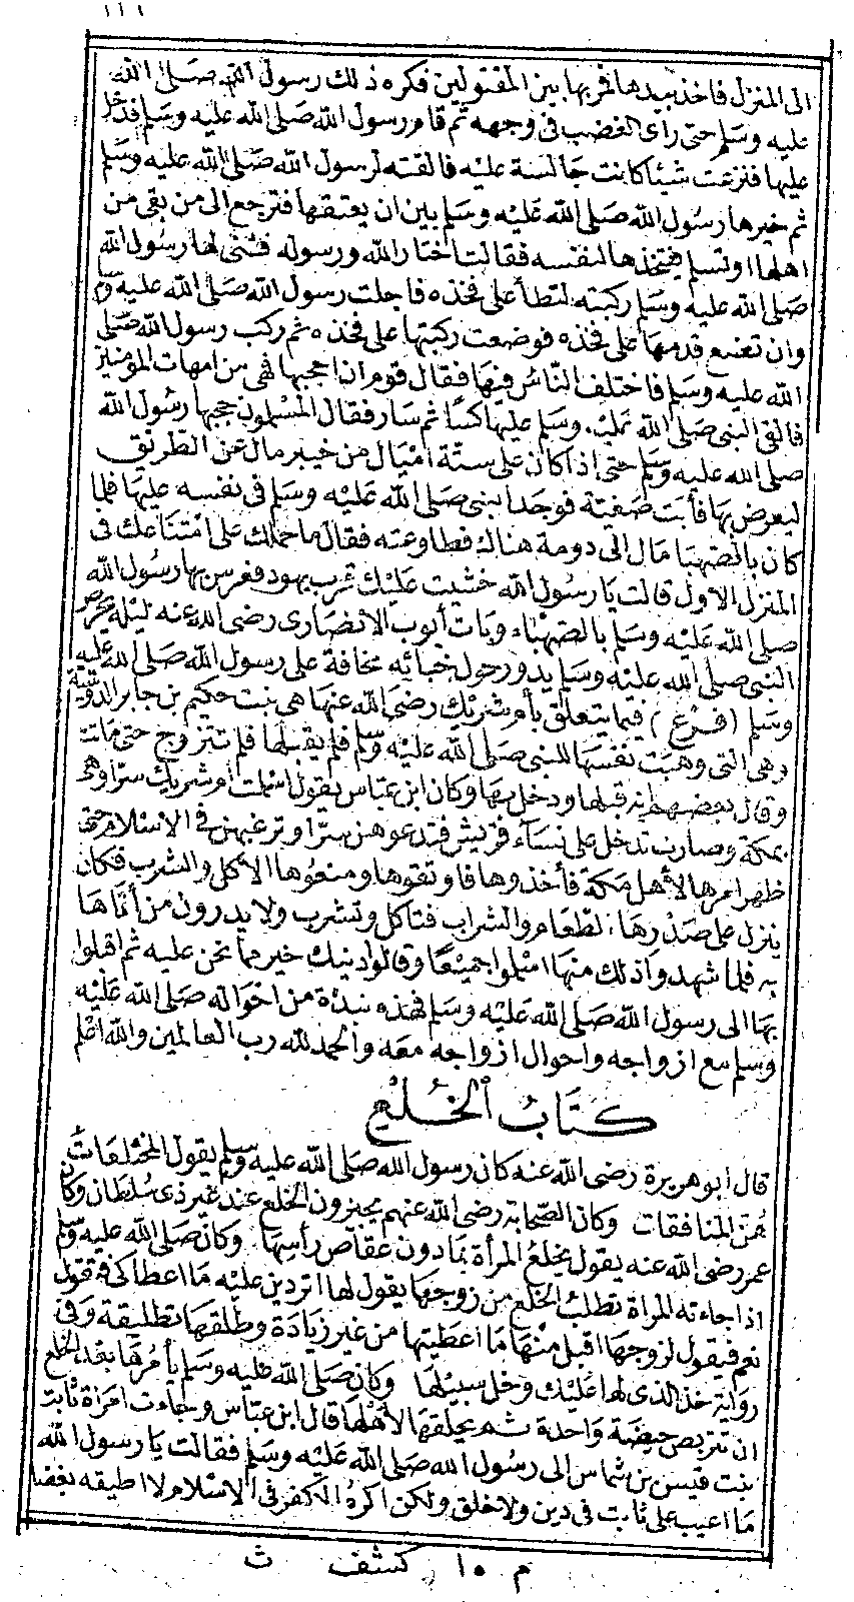 الى المنزل فاخذ بيدها فمر بها بين المقتولين فكره ذلك رسول الله صَلى الله
عليه وسَلم حتى رأى الغضب فى وجهه ثم قام رسول الله صَلى الله عليه وسَلم فدخل
عليها فنزعت شيئا كانت جَالسة عليه فالقته لرسول الله صَلى الله عليه وسَلم
ثم خيرها رسُول الله صَلى الله عَليْه وسَلم بين ان يعتقها فترجع الى من بقى من
اهلها او تسلم فيتخذها لنفسه فقالت اختار الله ورسوله فثنى لها رسُول الله
صَلى الله عليه وسَلم ركبته لتطأ على فخذه فاجلت رسول الله صَلى الله عليه وسلم
وان تضع قدمها على فخذه فوضعت ركبتها على فخذه ثم ركب رسول الله صَلى
الله عليه وسَلم فاختلف النّاسُ فيهَا فقال قوم ان احجبها فهى من امهات المؤمنين
فالقى النبى صَلى الله عليه وسَلم عليها كسًا ثم سَار فقال المسْلمون حجبها رسُول الله
صلى الله عليه وسَلم حتى إذا كان على ستّة امْيَال من خيبر مال عن الطّريق
ليعرض بهَا فأبَت صَفيّة فوجد النبى صَلى الله عَليْه وسَلم فى نفسه عليهَا فلما
كان بالصّهبَا مَال الى دومة هناك فطاوعته فقال ما حملك على امْتنَاعك فى
المنزل الاول قالت يَا رسُول الله خشيت عَليْك قرب يهود فعرس بها رسُول الله
صلى الله عَليْه وسَلم بالصّهبَاء وبَات أبو ايوب الانصَارى رضى الله عنه ليْلة يحرس
النبى صلى الله عليْه وسَلم يدور حول خبائه مخافة على رسول الله صَلى الله عليه
وسَلم (فرع) فيما يتعلق بأم شريك رضىَ الله عنهَا هى بنت حكيم بن جابر الدوسية
وهى التى وهبَت نفسَهَا للنبى صَلى الله عليه وسَلم فلم يقبلها فلم تتزوج حتى مَاتت
وقال بعضهم انه قبلها ودخل بهَا وكان ابن عبّاس يقول اسْلمت ام شريك سرّا وهى
بمكة وصَارت تدخل على نسَآء قريش فتدعوهن سرّا وترغبهن فى الاسْلام حتى
ظهر امرها لأهْل مَكة فأخذوها فاوثقوها ومنعُوها الأكل والشرب فكان
ينزل على صَدْرهَا الطعَام والشراب فتأكل وتشرب ولا يدرون من أتَاهَا
به فلما شهدوا ذلك منهَا اسْلموا جميْعًا وقالوا دينك خير مما نحن عليه ثم اقبلوا
بهَا الى رسول الله صَلى الله عَليْه وسَلم فهذه نبذة من احْوَاله صَلى الله عَليْه
وسلم مع ازواجه واحوال ازواجه معَه والحمد لله رب العالمين والله اعْلم
كتَابُ الخُلع
قال ابو هريرة رضى الله عنه كان رسول الله صَلى الله عليه وسَلم يقول المختلعَات
هُنّ المنافقات وكان الصّحابة رضى الله عنهم يجيزون الخلع عند غير ذى سُلطان وكان
عمر رضى الله عنه يقول يخلعُ المرأة بمَا دون عقاص رأسهَا وكان صَلى الله عليه وسَلم
اذا جاءته المراة تطلبُ الخلع من زوجهَا يقول لها اتردين عليْه مَا اعطاكى فتقول
نعم فيقول لزوجهَا اقبل منْهَا مَا اعطيتها من غير زيَادَة وطلقهَا تطليقة وفى
رواية خذ الذى لها عَليْك وخل سبيْلها وكان صَلى الله عليه وسَلم يأمُرهَا بعْد الخلع
ان تتربص حيضَة وَاحدة ثم يحلقهَا لأهْلهَا قال ابن عبّاس وجاءت امرَأة ثابت
بنت قيس بن شماس الى رسُول الله صَلى الله عَليْه وسَلم فقالت يَا رسول الله
مَا اعيب على ثابت فى دين ولا خلق ولكن اكرهُ الكفر فى الاسْلام لا اطيقه بغضا
م ١٥ كشف ث